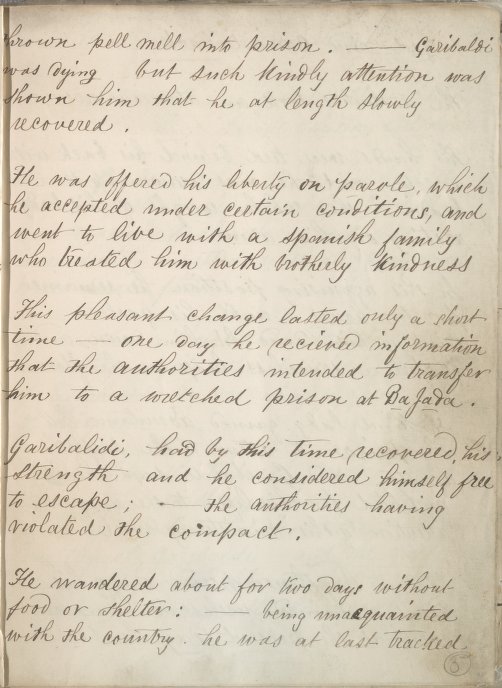 thrown pell mell into prison. — Garibaldi
was dying but such kindly attention was
shown him that he at length slowly
recovered.
He was offered his liberty on parole, which
he accepted under certain conditions, and
went to live with a spanish family
who treated him with brotherly kindness
This pleasant change lasted only a short
time — one day he recieved information
that the authorities intended to transfer
him to a wretched prison at Bajada.
Garibalidi, had by this time recovered, his
strength and he considered himself free
to escape; — the authorities having
violated the compact.
He wandered about for two days without
food or shelter: — being unacquainted
with the country. he was at last tracked
5